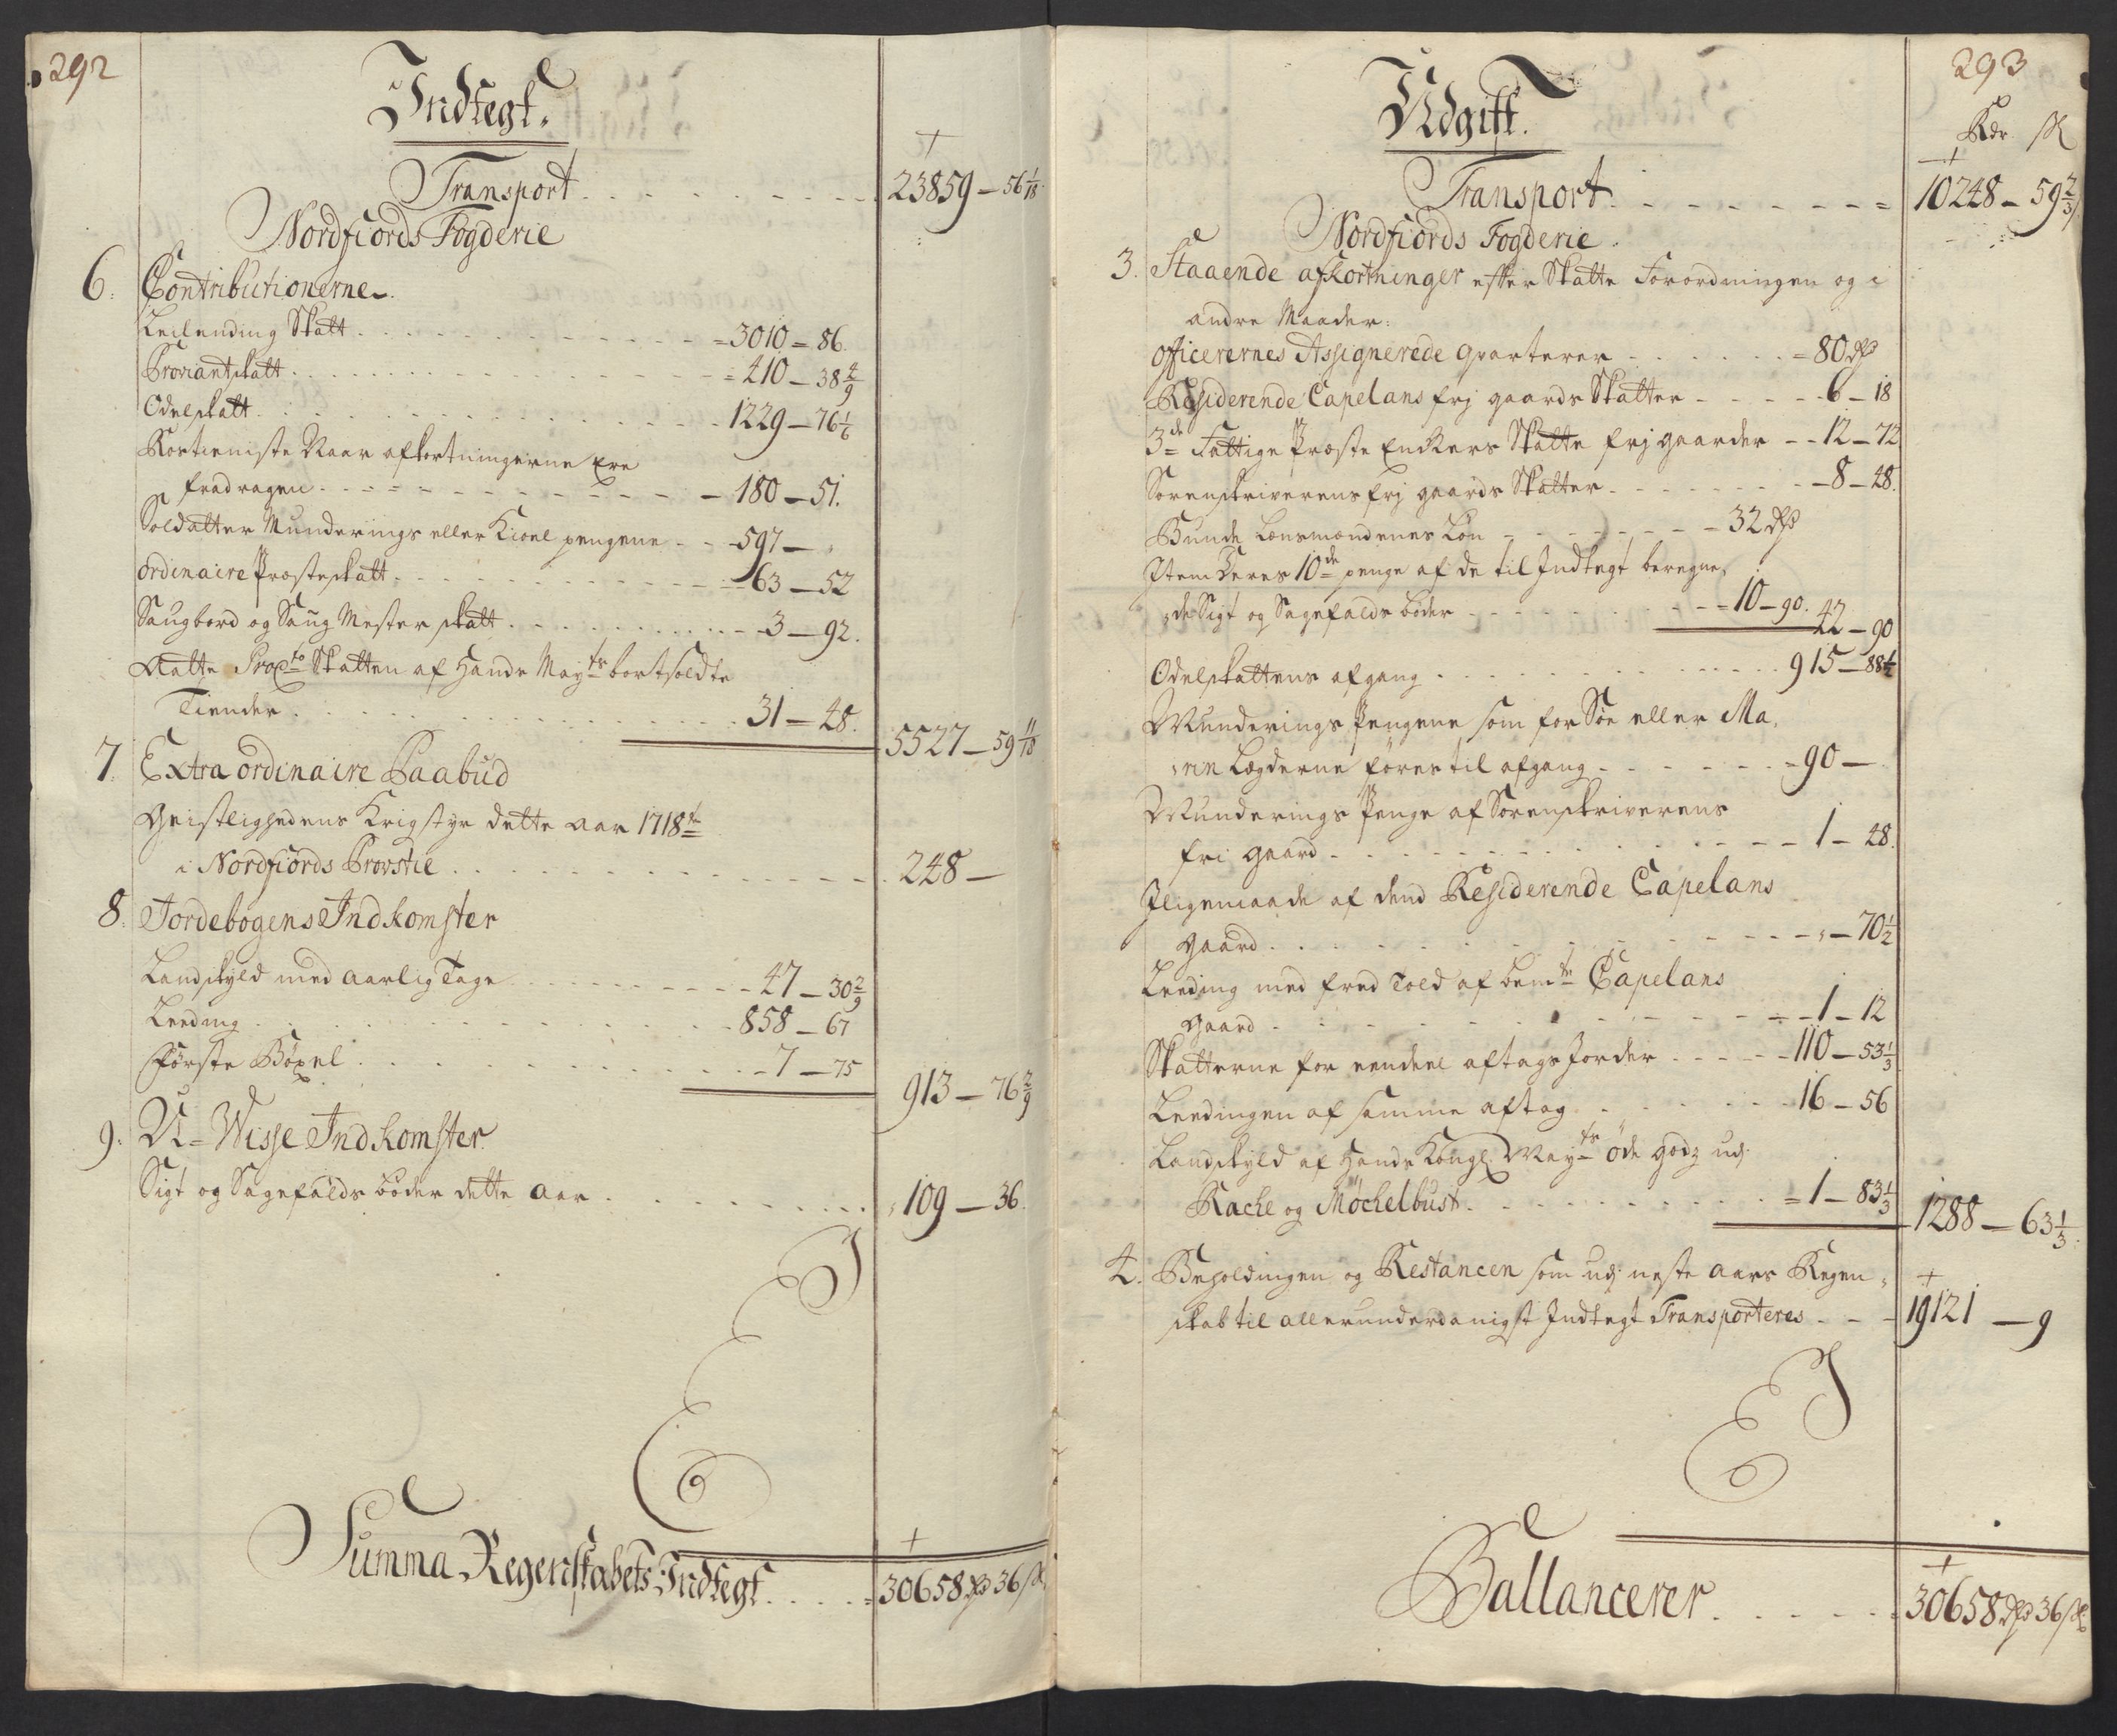 292
Indtegt.
Transport - - - - - - - - - 23859 — 56 1/18
Nordfiords Fogderie
6. Contributionerne
Leilending Skatt - - - - - - - - = 3010 = 86.
Proviantskatt - - - - - - - - = 410 — 38 4/9
Odelskatt - - - - - - - - - 1229 — 76 1/6
Kortieniste Naar afkortningerne Ere
fradragen - - - - - - - - - 180 — 51.
Soldatter Munderings eller Kioel pengene - - 597 — „
ordinaire Præsteskatt - - - - - - - 63 — 52
Saugbord og Saug Mester skatt - - - - - - 3 — 92.
Skatten af Hands Maytz bortsoldte
Tiender - - - - - - - - - 31 — 48.
5527 — 59 11/18
7. Extra ordinaire Paabud
Geistlighedens Krigstyr dette aar 1718
i Nordfiords Provstie - - - - - - - - 248 —
8. Jordebogens Indkomster
Landskyld med aarlig Tage - - - - - - 47 — 30 2/9
Leeding - - - - - - - - - 858 — 67
Første Böxel - - - - - - - - - 7 — 75
913 — 76 2/9
9. U-Wisse Indkomster
Sigt og Sagefalds bøder dette aar - - - - - - 109 — 36.
Summa Regenskabets Indtegt - - - - = 30658 rd 36 sk
293
Udgift.
Rdr sk
Transport - - - - - - - - = 10248 — 59 2/3
Nordfiords Fogderie.
3. Staaende afkortninger efter Skatte Forordningen og i
andre Maader:
officerernes Assignerede qvarterer - - - - - = 80 rd
Residerende Capelans frj gaards Skatter - - - - - 6 — 18
3de Fattige Præste Enckers Skatte frj gaarder - - 12 — 72
Sorenskriverens frj gaards Skatter - - - - - - 8 — 48.
Bunde Lensmændenes Løn - - - - - - 32 rd
Item deres 10de penge af de til Indtegt beregne,
„de Sigt og Sagefalds bøder - - - - - - = 10 — 90.
42 — 90
Odelskattens afgang - - - - - - - - 915 — 88 1/2
Munderings Pengene som for Søe eller Ma,
„rin Lægderne føres til afgang - - - - - - 90 —
Munderings Penge af Sorenskriverens
fri gaard - - - - - - - - - 1 — 48.
Iligemaade af dend Residerende Capelans
gaard - - - - - - - - - - „ — 70 1/2
Leeding med fred Told af bemte Capelans
gaard - - - - - - - - - - 1 — 12
Skatterne for eendeel aftags Jorder - - - - - 110 — 53 1/3
Leedingen af samme aftag - - - - - - 16 — 56
Landskyld af Hands Kongl. Maytz øde godz udj
Rache og Møchelbust - - - - - - - = 1 — 83 1/3
1288 — 63 1/3
4. Beholdingen og Restancen som udj neste aars Regen,
skab til allerunderdanigst Indtegt Transporteres - - - 19121 — 9
Ballancerer - - - - - 30658 rd 36 sk